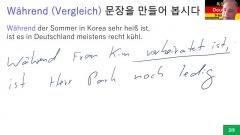 Während (Vergleich) 문장을 만들어 봅시다
Während der Sommer in Korea sehr heiß ist,
ist es in Deutschland meistens recht kühl.
Während Frau Kim verheiratet ist,
ist Herr Park noch ledig